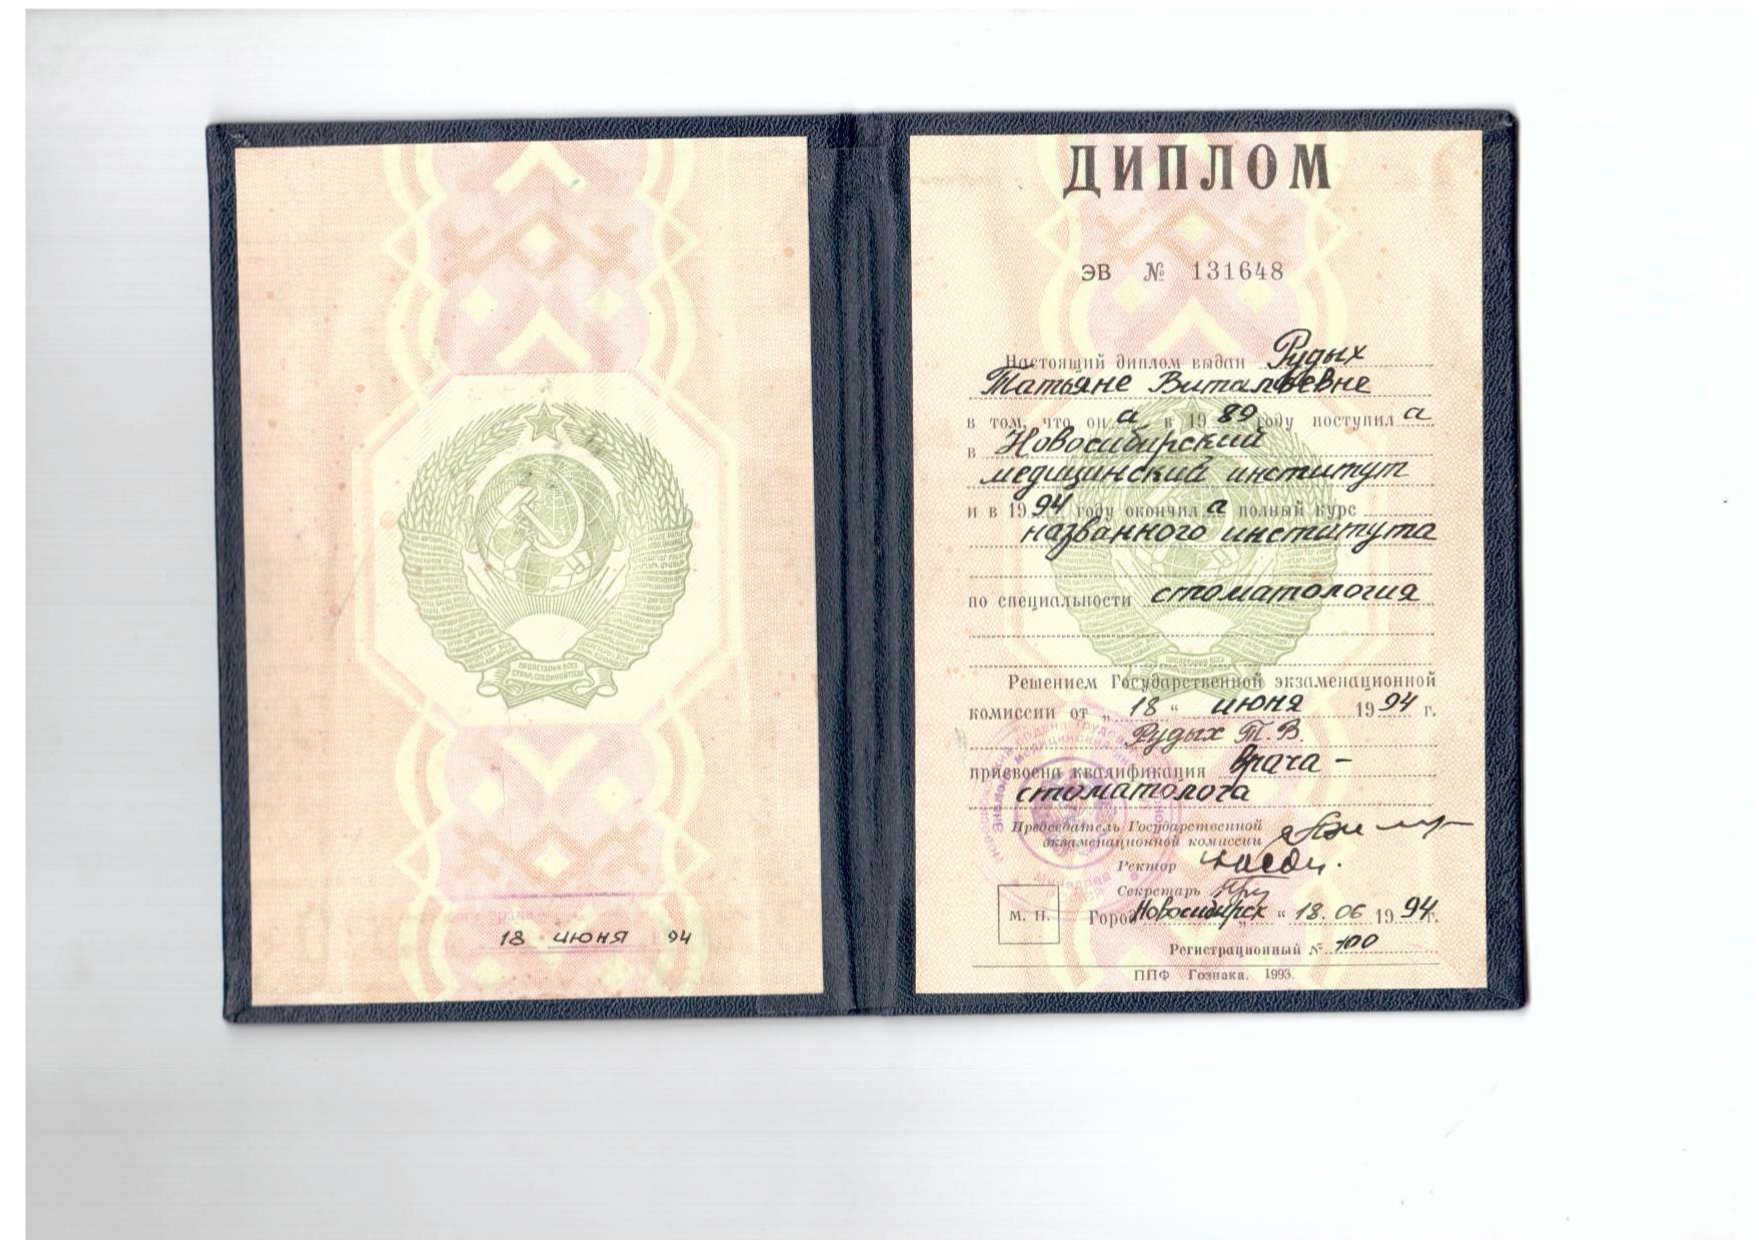 ПРОЛЕТАРИИ ВСЕХ
СТРАН, СОЕДИНЯЙТЕСЬ!
18 июня 94
ДИПЛОМ
ЭВ № 131648
Настоящий диплом выдан Рудых
Татьяне Витальевне
в том, что он а в 19 89 году поступил а
в Новосибирский
медицинский институт
и в 19 94 году окончил а полный курс
названного института
по специальности стоматология
Решением Государственной экзаменационной
комиссии от „ 18 “ июня 19 94 г.
Рудых Т.В.
присвоена квалификация врача-
стоматолога
Председатель Государственной
экзаменационной комиссии
Ректор
Секретарь
М. П.
Город Новосибирск „ “ 18. 06 19 94 г.
Регистрационный №
ППФ Гознака. 1993.